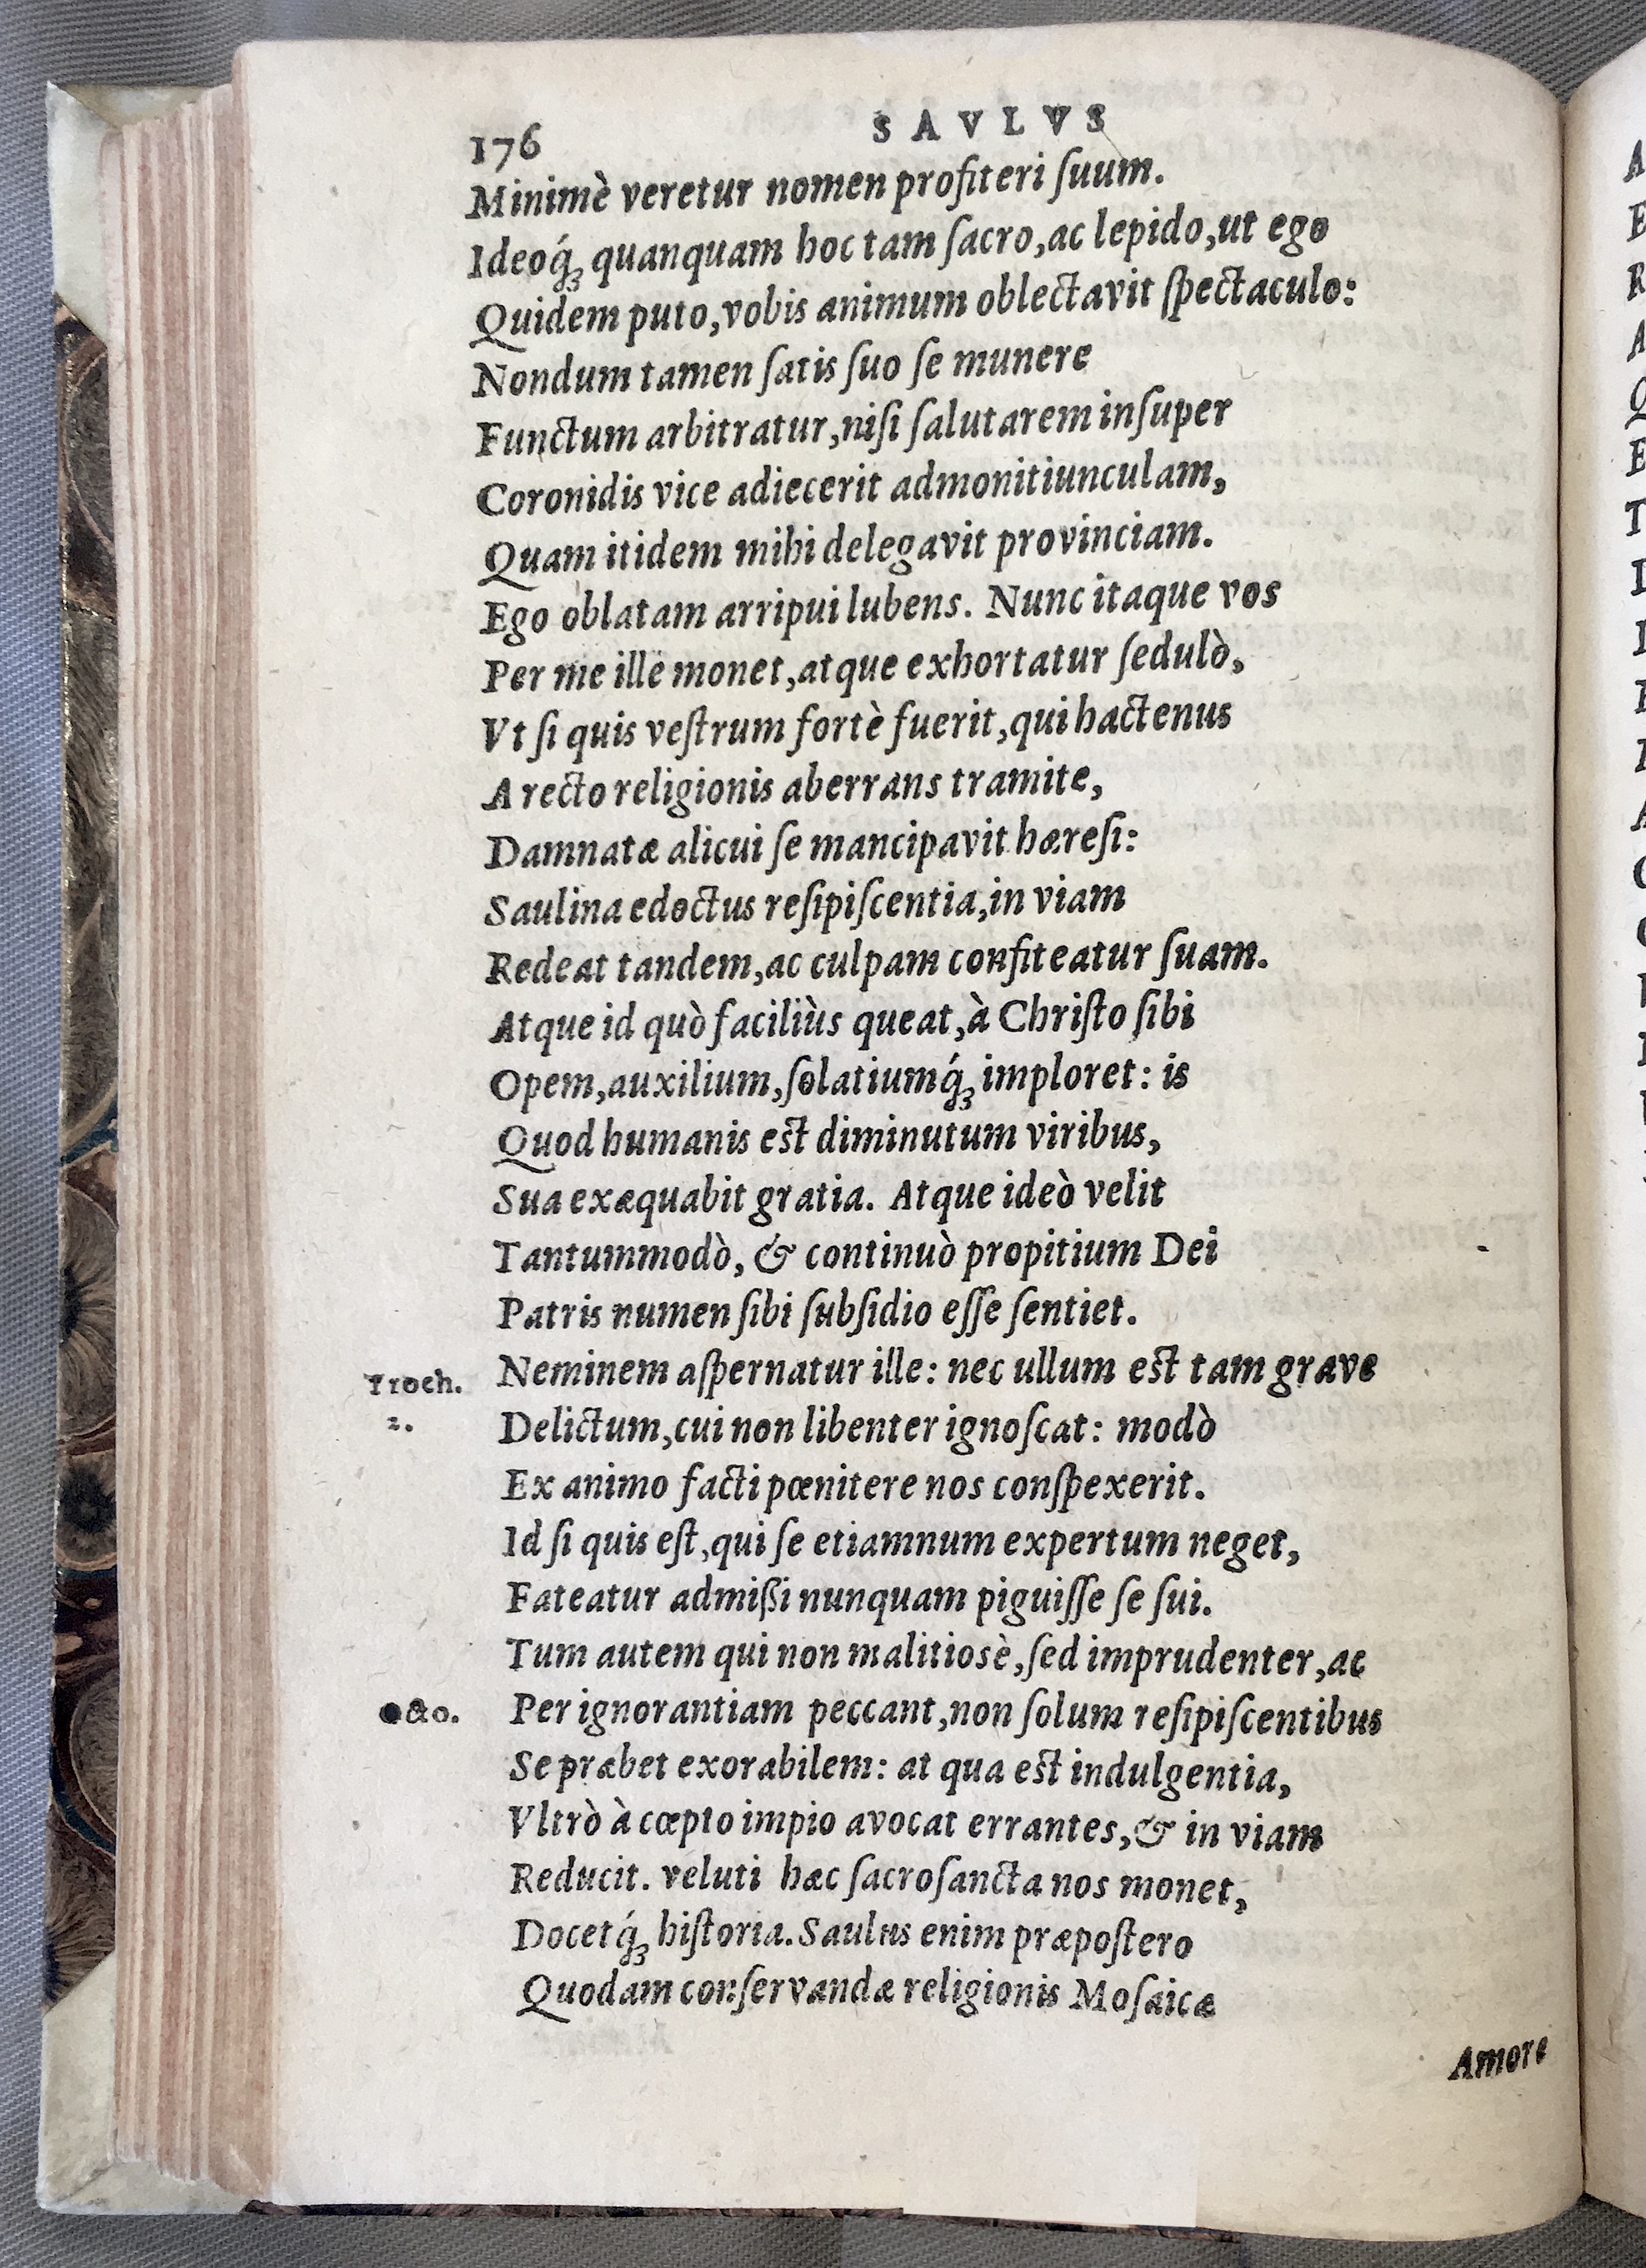 176 SAVLVS
Minimè veretur nomen profiteri ſuum.
Ideoq́ꝫ quanquam hoc tam ſacro, ac lepido, ut ego
Quidem puto, vobis animum oblectavit ſpectaculo:
Nondum tamen ſatis ſuo ſe munere
Functum arbitratur, niſi ſalutarem inſuper
Coronidis vice adiecerit admonitiunculam,
Quam itidem mihi delegavit provinciam.
Ego oblatam arripui lubens. Nunc itaque vos
Per me ille monet, atque exhortatur ſedulò,
Vt ſi quis veſtrum fortè fuerit, qui hactenus
A recto religionis aberrans tramite,
Damnatæ alicui ſe mancipavit hæreſi:
Saulina edoctus reſipiſcentia, in viam
Redeat tandem, ac culpam confiteatur ſuam.
Atque id quò faciliùs queat, à Chriſto ſibi
Opem, auxilium, ſolatiumq́ꝫ imploret: is
Quod humanis est diminutum viribus,
Sua exæquabit gratia. Atque ideò velit
Tantummodò, & continuò propitium Dei
Patris numen ſibi ſubſidio eſſe ſentiet.
Troch. Neminem aſpernatur ille: nec ullum est tam grave
2. Delictum, cui non libenter ignoſcat: modò
Ex animo facti pœnitere nos conſpexerit.
Id ſi quis eſt, qui ſe etiamnum expertum neget,
Fateatur admißi nunquam piguiſſe ſe ſui.
Tum autem qui non malitiosè, ſed imprudenter, ac
Per ignorantiam peccant, non ſolum reſipiſcentibus
Se præbet exorabilem: at qua est indulgentia,
Vltrò à cœpto impio avocat errantes, & in viam
Reducit. veluti hæc ſacroſancta nos monet,
Docetq́ꝫ hiſtoria. Saulus enim præpoſtero
Quodam conſervandæ religionis Moſaicæ
Amore